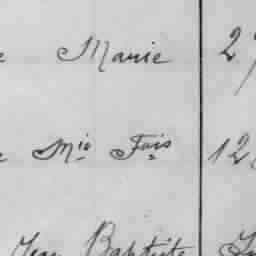 e Marie 27
e Mie Fois 12
Jean Baptiste